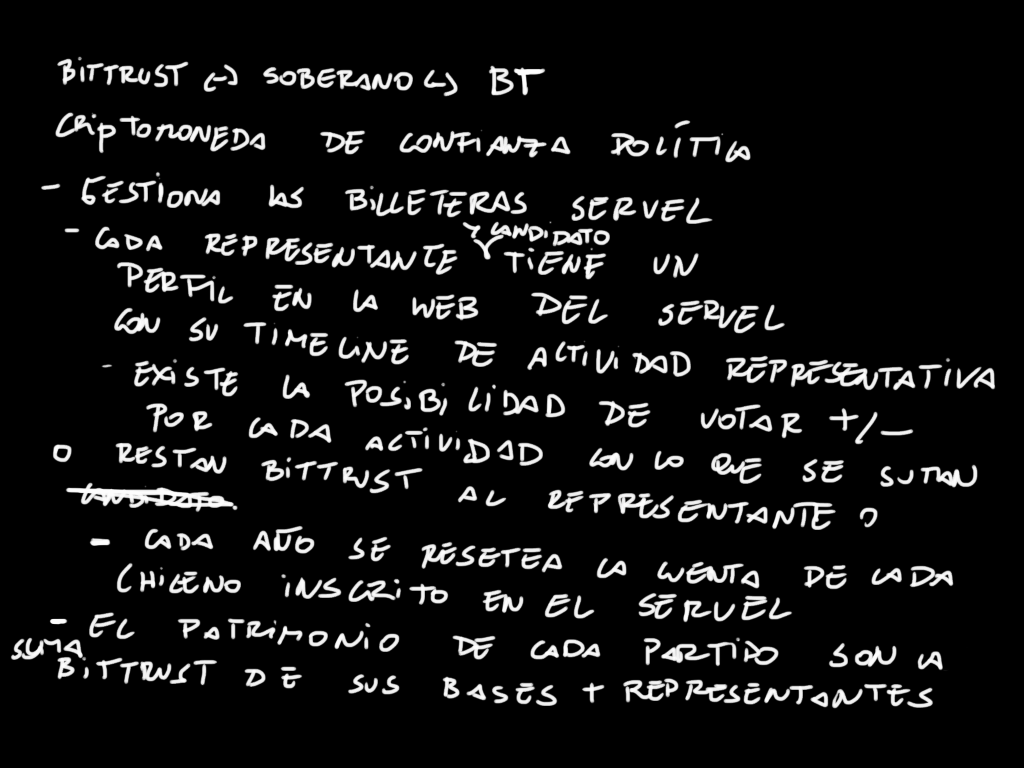 BITTRUST (-) SOBERANO (-) BT
CRIPTOMONEDA DE CONFIANZA POLÍTICA
- GESTIONA LAS BILLETERAS SERVEL
- CADA REPRESENTANTE Y CANDIDATO TIENE UN
PERFIL EN LA WEB DEL SERVEL
CON SU TIMELINE DE ACTIVIDAD REPRESENTATIVA
- EXISTE LA POSIBILIDAD DE VOTAR +/-
POR CADA ACTIVIDAD CON LO QUE SE SUMAN
O RESTAN BITTRUST AL REPRESENTANTE O
CANDIDATO.
- CADA AÑO SE RESETEA LA CUENTA DE CADA
CHILENO INSCRITO EN EL SERVEL
- EL PATRIMONIO DE CADA PARTIDO SON LA
SUMA BITTRUST DE SUS BASES + REPRESENTANTES